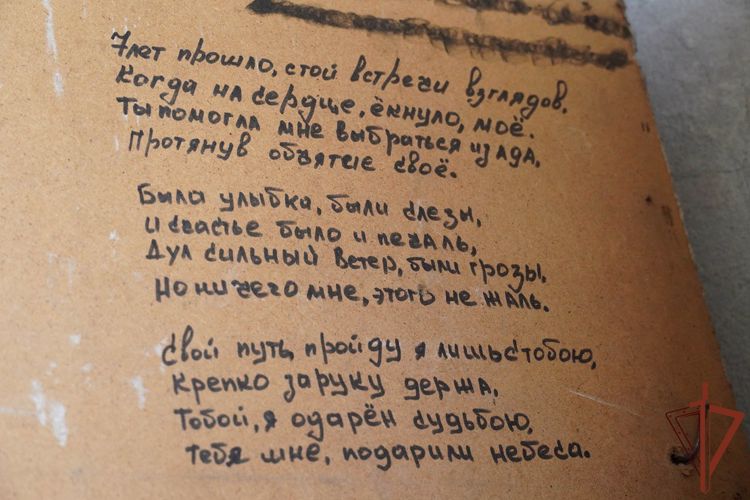 7 лет прошло, стой встречи взглядов.
Когда на сердце, ёкнуло, моё.
Ты помогла мне выбраться из ада,
Протянув объятие своё.
Была улыбка, были слезы,
и счастье было и печаль,
Дул сильный ветер, были грозы,
Но ничего мне, этого не жаль.
Свой путь, пройду я лишь стобою,
Крепко за руку держа,
Тобой, я одарён судьбою,
Тебя мне, подарили небеса.